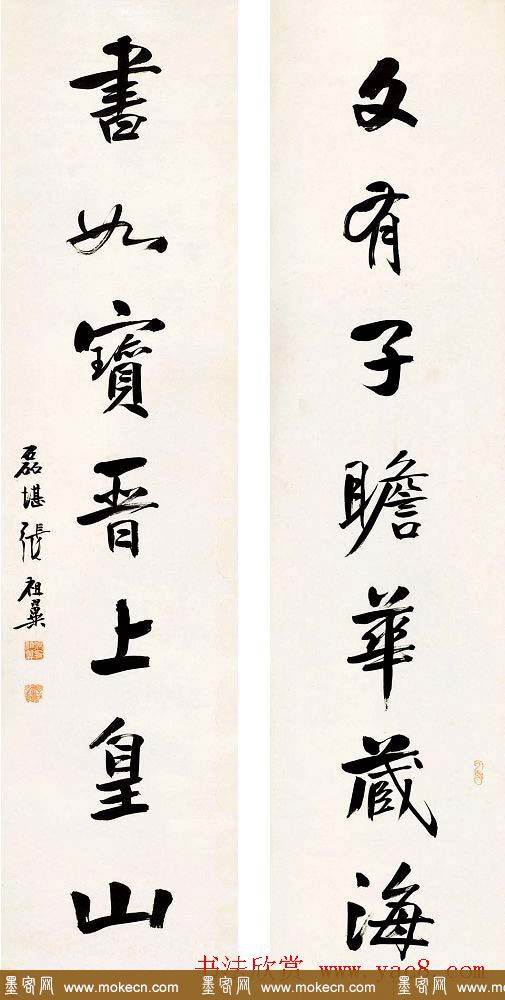 文有子瞻華藏海
書如寶晉上皇山
磊堪張祖翼
书法欣赏 www.yac8.com
墨客网 www.mokecn.com 墨客网 www.mokecn.com 墨客网 www.mokecn.com